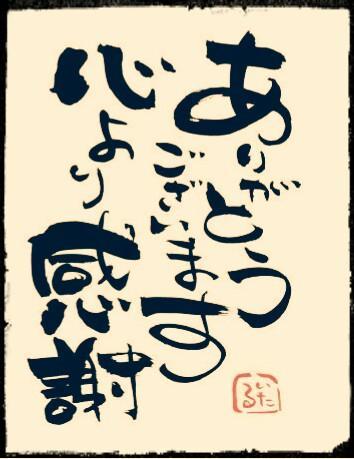 ありがとう
ございます
心より
感謝